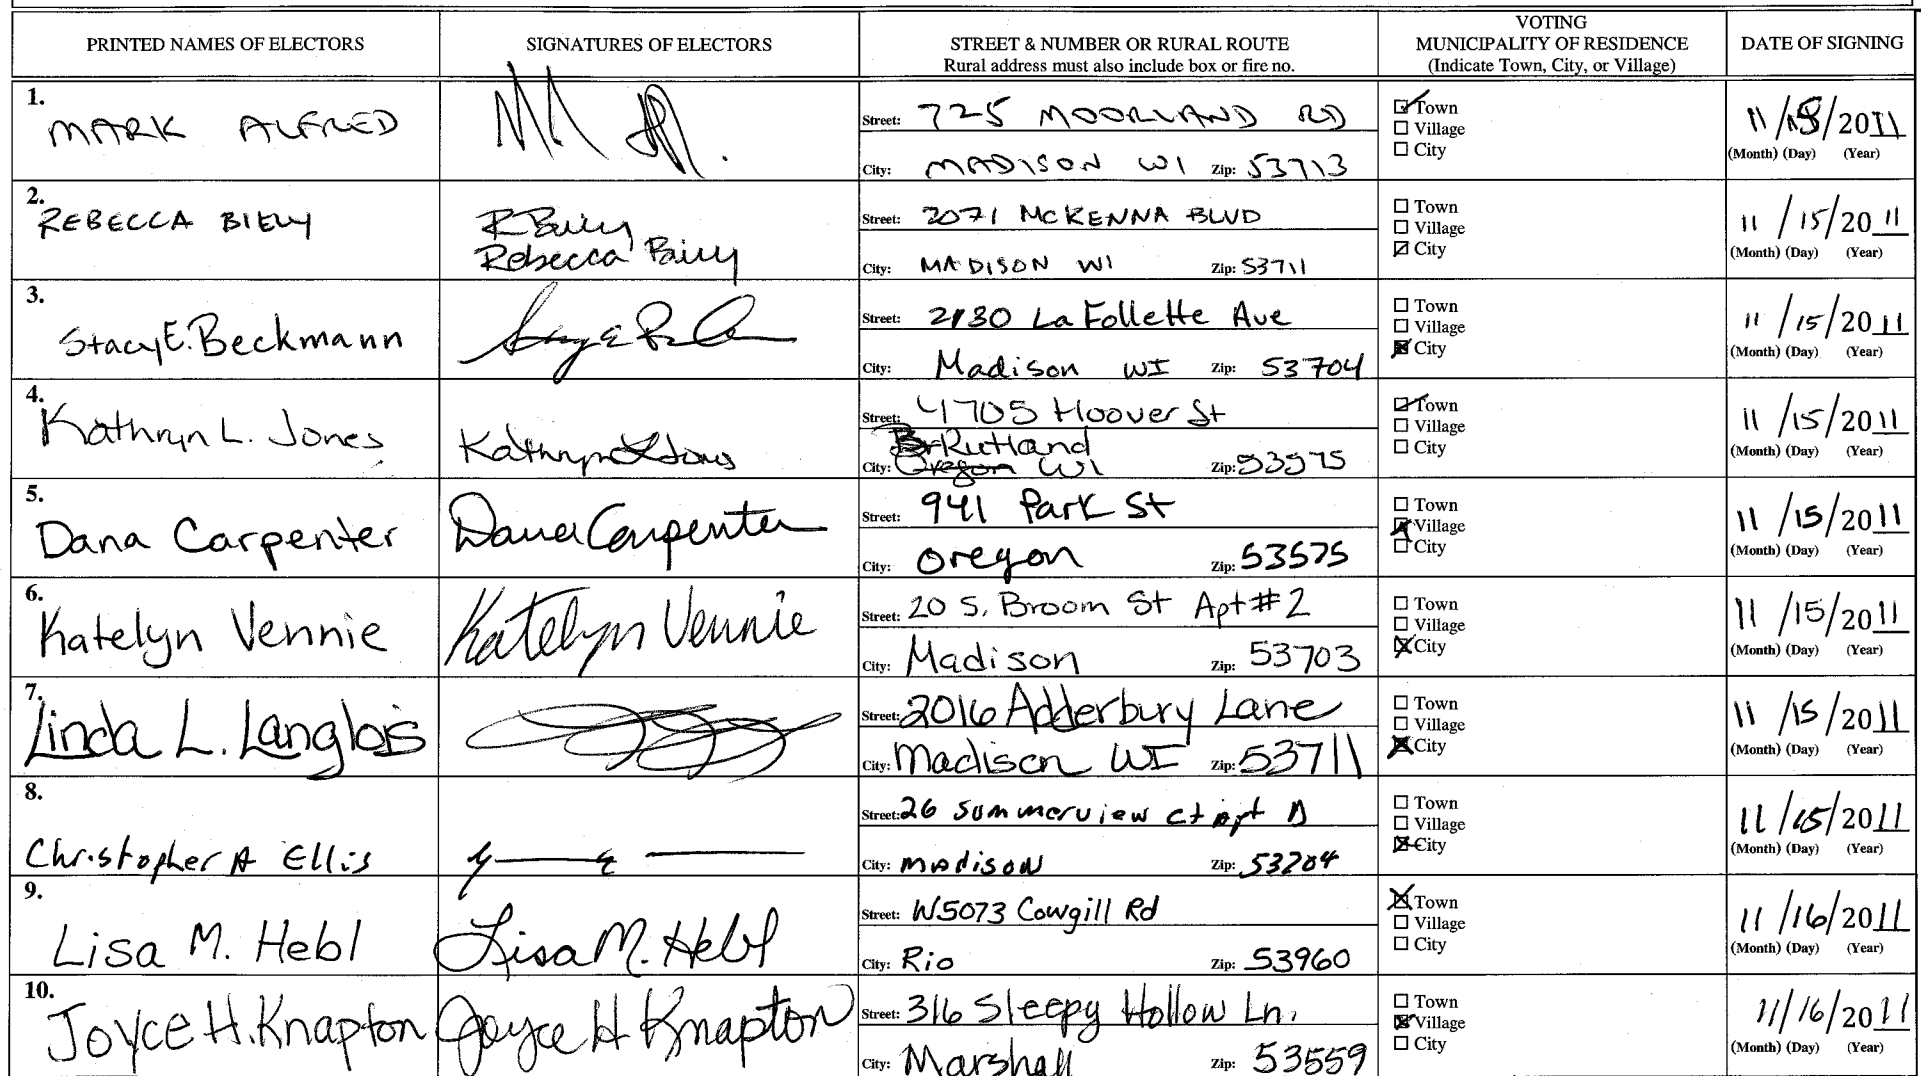 PRINTED NAMES OF ELECTORS
SIGNATURES OF ELECTORS
STREET & NUMBER OR RURAL ROUTE
Rural address must also include box or fire no.
VOTING
MUNICIPALITY OF RESIDENCE
(Indicate Town, City, or Village)
DATE OF SIGNING
1.
MARK ALFRED
Street: 725 MOORLAND RD
City: MADISON WI Zip: 53713
Town
Village
City
11/15/2011
(Month) (Day) (Year)
2.
REBECCA BIELY
R Biely
Rebecca Biely
Street: 2071 MCKENNA BLVD
City: MADISON WI Zip: 53711
Town
Village
City
11/15/2011
(Month) (Day) (Year)
3.
Stacy E. Beckmann
Street: 2130 La Follette Ave
City: Madison WI Zip: 53704
Town
Village
City
11/15/2011
(Month) (Day) (Year)
4.
Kathryn L. Jones
Kathryn L Jones
Street: 4705 Hoover St
Rutland
City: Oregon WI Zip: 53575
Town
Village
City
11/15/2011
(Month) (Day) (Year)
5.
Dana Carpenter
Dana Carpenter
Street: 941 Park St
City: Oregon Zip: 53575
Town
Village
City
11/15/2011
(Month) (Day) (Year)
6.
Katelyn Vennie
Katelyn Vennie
Street: 20 S. Broom St Apt #2
City: Madison Zip: 53703
Town
Village
City
11/15/2011
(Month) (Day) (Year)
7.
Linda L. Langlois
Street: 2016 Adderbury Lane
City: Madison WI Zip: 53711
Town
Village
City
11/15/2011
(Month) (Day) (Year)
8.
Christopher A Ellis
Street: 26 Summerview ct apt D
City: Madison Zip: 53704
Town
Village
City
11/15/2011
(Month) (Day) (Year)
9.
Lisa M. Hebl
Lisa M. Hebl
Street: W5073 Cowgill Rd
City: Rio Zip: 53960
Town
Village
City
11/16/2011
(Month) (Day) (Year)
10.
Joyce H. Knapton
Joyce H Knapton
Street: 316 Sleepy Hollow Ln.
City: Marshall Zip: 53559
Town
Village
City
11/16/2011
(Month) (Day) (Year)